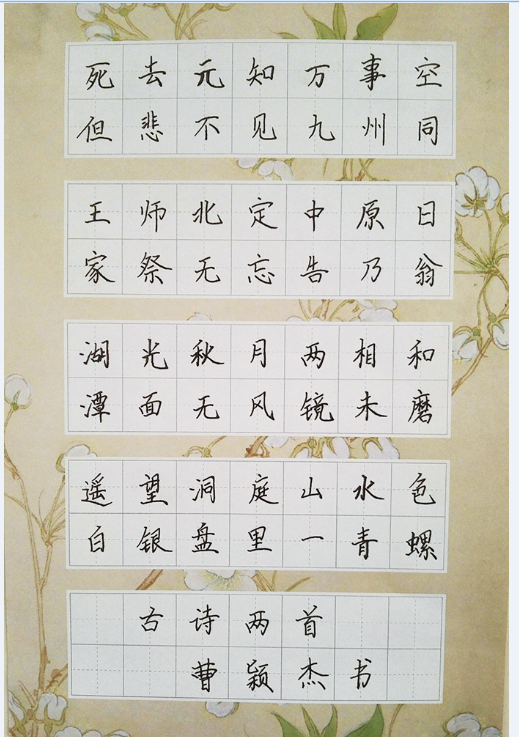 死去元知万事空
但悲不见九州同
王师北定中原日
家祭无忘告乃翁
湖光秋月两相和
潭面无风镜未磨
遥望洞庭山水色
白银盘里一青螺
古诗两首
曹颖杰书